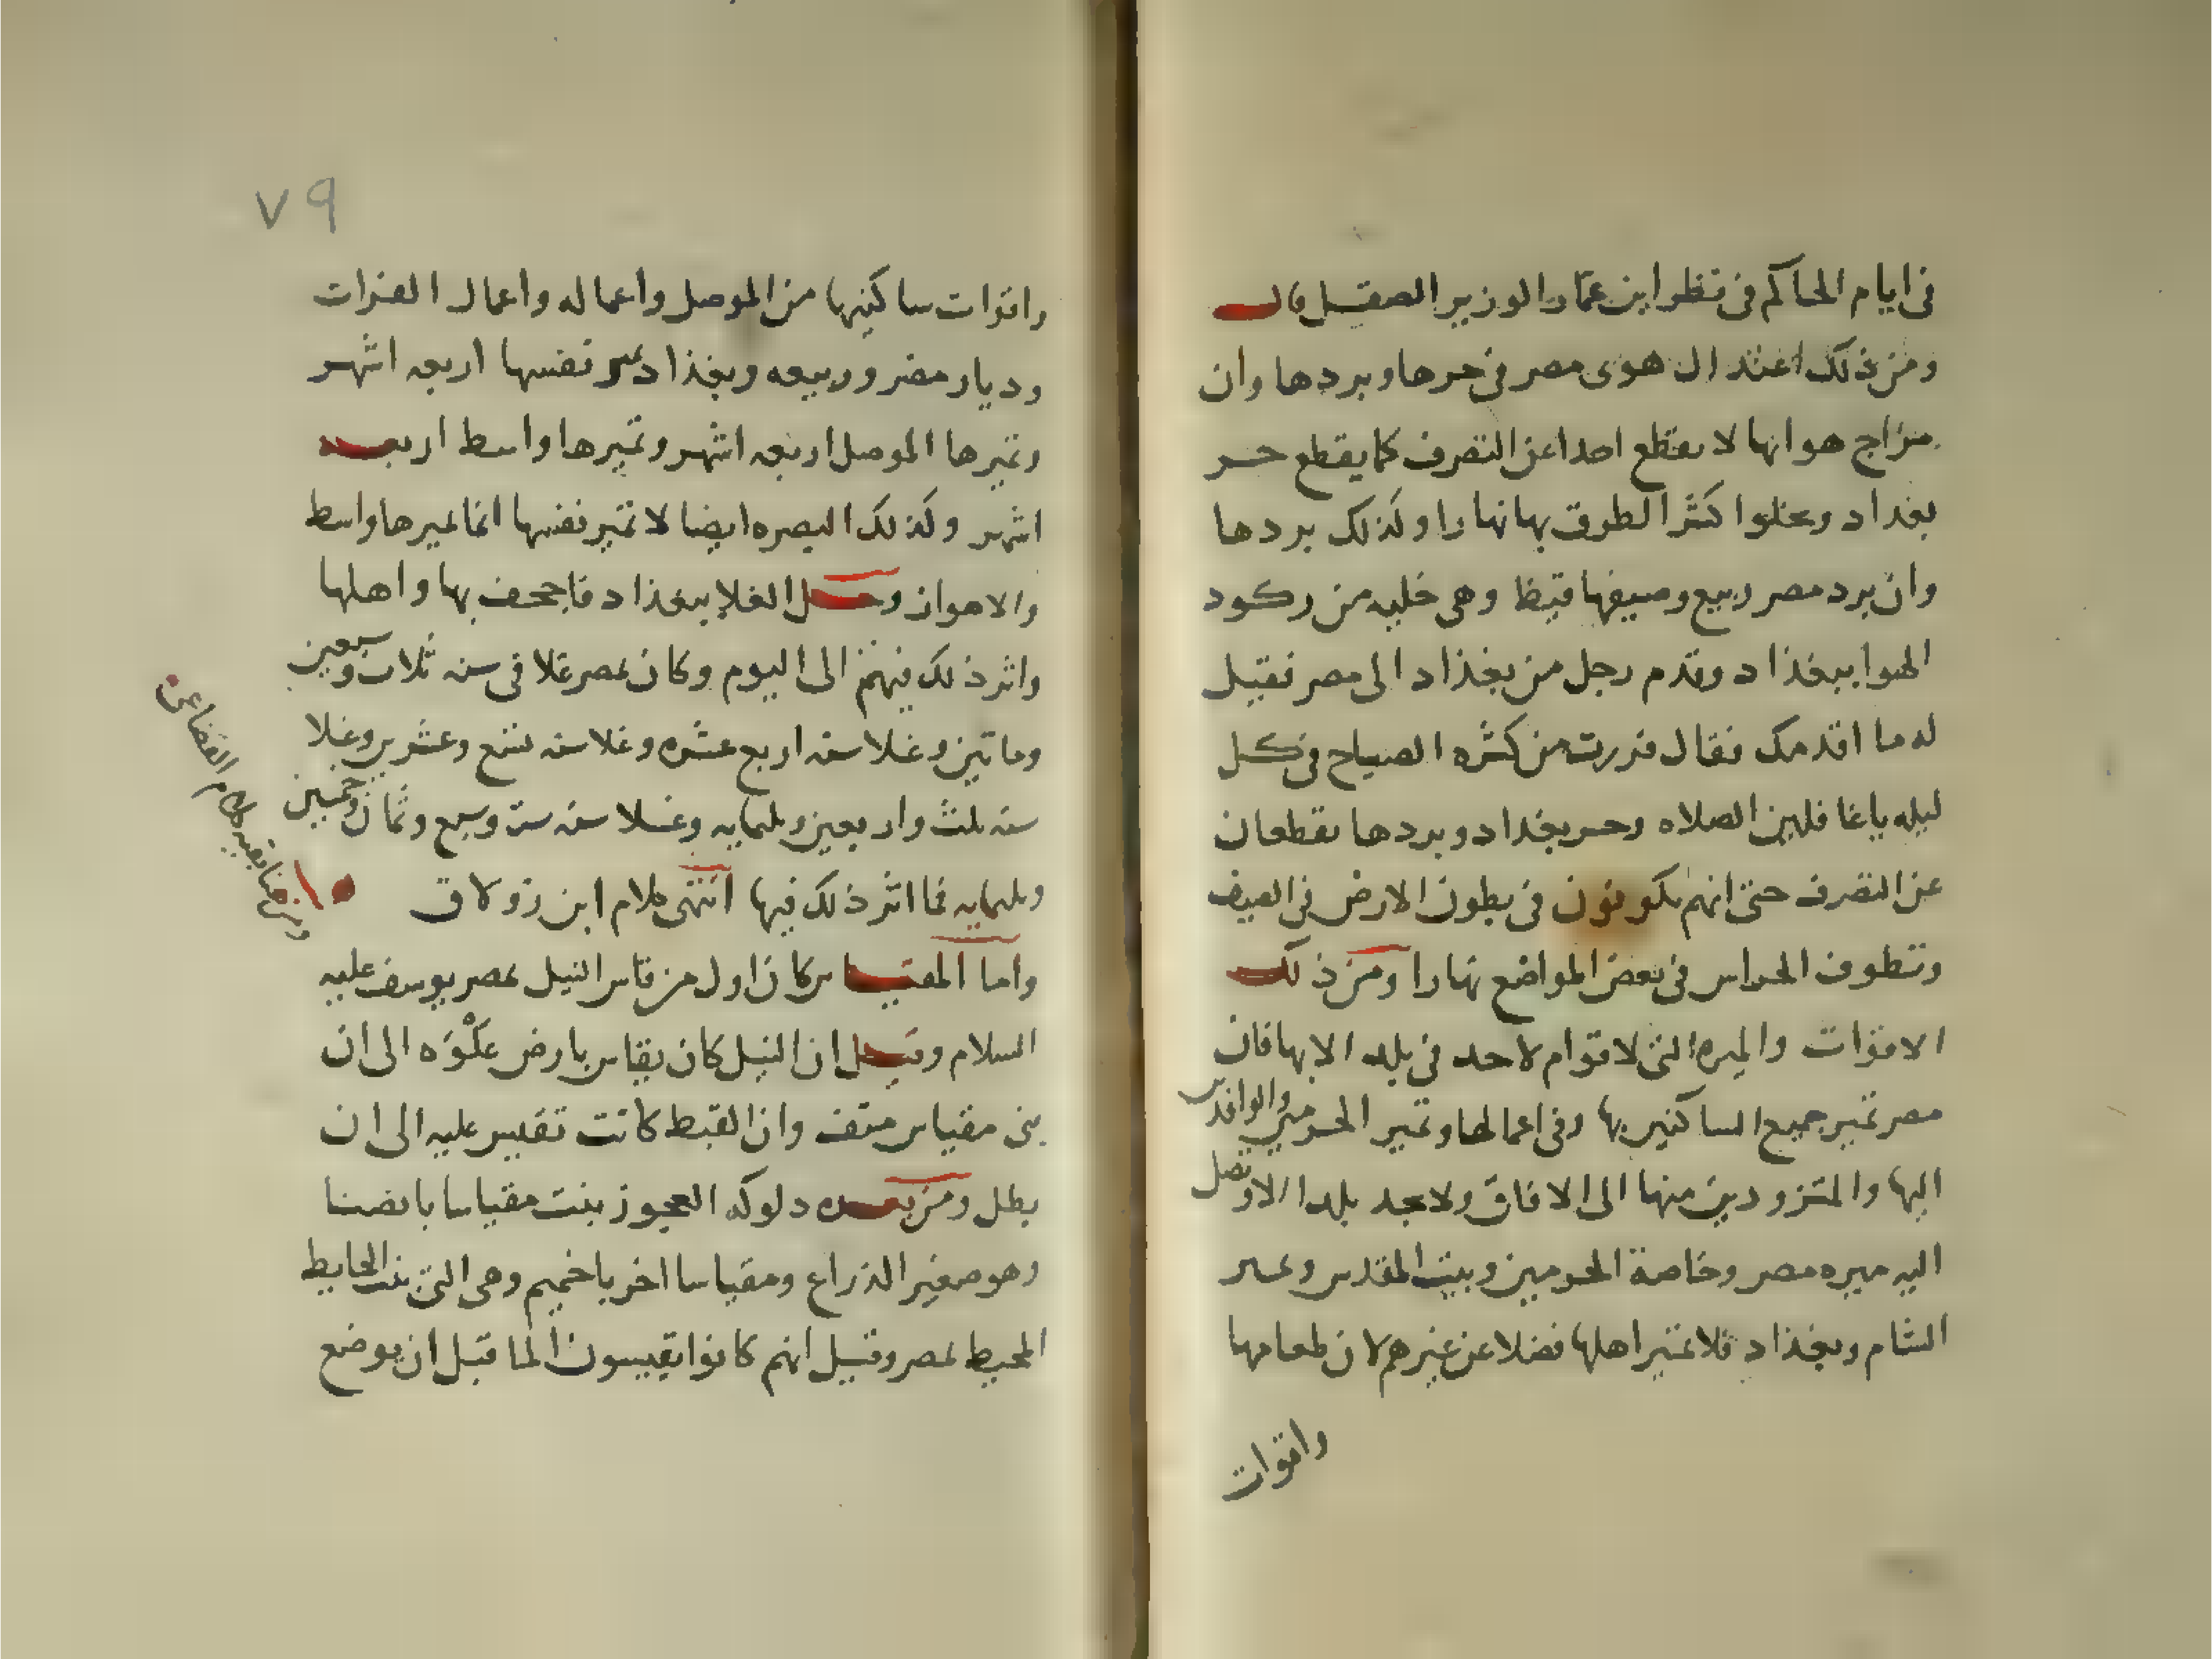 فى ايام الحاكم فى نظر ابن عمّار الوزير الصقيل قال
ومن ذلك اعتدال هوى مصر فى حرها وبردها وان
مزاج هوائها لا يقطع احدا عن التصرف كما يقطع حر
بغداد ويخلوا كثر الطرق بها نهارا وكذلك بردها
وان برد مصر ربيع وصيفها قيظا وهى خليه من ركود
الهوا ببغداد وقدم رجل من بغداد الى مصر فقيل
له ما اقدمك فقال فررت من كثره الصياح فى كل
ليله يا غافلين الصلاه وحر بغداد وبردها يقطعان
عن التصرف حتى انهم يكونون فى بطون الارض فى الصيف
وتطوف الحراس فى بعض المواضع نهارا ومن ذلك
الاقوات والميره التى لا قوام لاحد فى بلد الا بها فان
مصر تمير جميع الساكنين بها وفى اعمالها وتمير الحرمين والوافدين
اليها والمتزودين منها الى الافاق ولا تجد بلدا الا وتصل
اليه ميره مصر وخاصة الحرمين وبيت المقدس وتمير
الشام وبغداد فلا تمير اهلها فضلا عن غيرهم لان طعامها
واقوات
٧٩
واقوات ساكنيها من الموصل واعماله واعمال الفرات
وديار مضر وربيعه وبغداد تمير نفسها اربعه اشهر
وتميرها الموصل اربعه اشهر وتميرها واسط اربعه
اشهر وكذلك البصره ايضا لا تمير نفسها انما تميرها واسط
والاهواز وحصل الغلا ببغداد فاجحف بها واهلها
واثر ذلك فيهم الى اليوم وكان بمصر غلا فى سنه ثلاث وسبعين
وماتين وغلا سنه اربع عشره وغلا سنه تسع وعشرين وغلا
سنه ثلث واربعين وثلثمايه وغلا سنه ست وسبع وثمان وخمسين
وثلثمايه فما اثر ذلك فيها انتهى كلام ابن زولاق
ومن هنا بقيه كلام القضاعى
واما المقياس كان اول من قاس النيل بمصر يوسف عليه
السلام وقيل ان النيل كان يقاس بارض عَلْوَه الى ان
بنى مقياس منف وان القبط كانت تقيس عليه الى ان
بطل ومن بعده دلوكه العجوز بنت مقياسا بانصنا
وهو صغير الذراع ومقياسا اخر باخميم وهى التى بنت الحايط
المحيط بمصر وقيل انهم كانوا يقيسون الما قبل ان يوضع